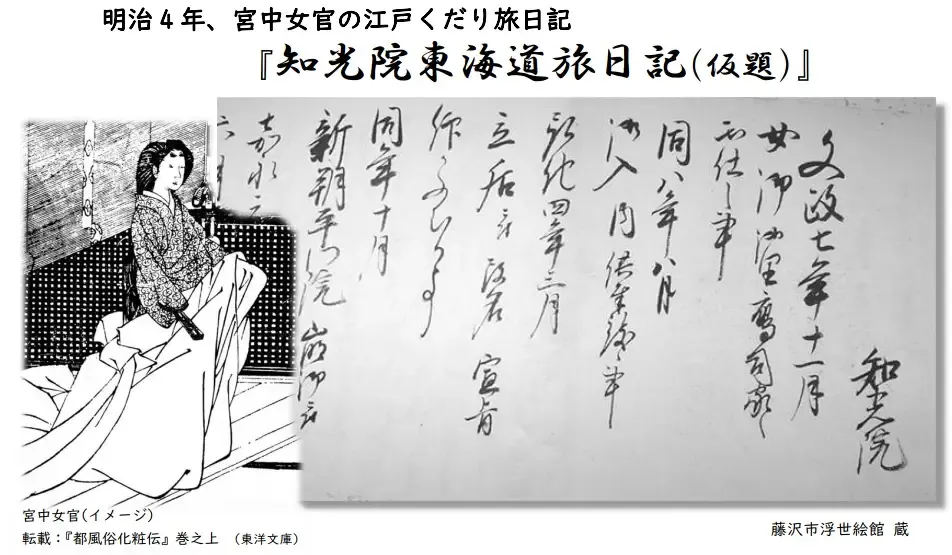 明治4年、宮中女官の江戸くだり旅日記
『知光院東海道旅日記(仮題)』
知光院
文政七年十一月
女御御里鷹司家へ
同八年八月
御入内供奉
弘化四年三月
改名宣旨
同年十月
新朔平門院崩御
嘉永元
宮中女官(イメージ)
転載:『都風俗化粧伝』巻之上 (東洋文庫)
藤沢市浮世絵館 蔵